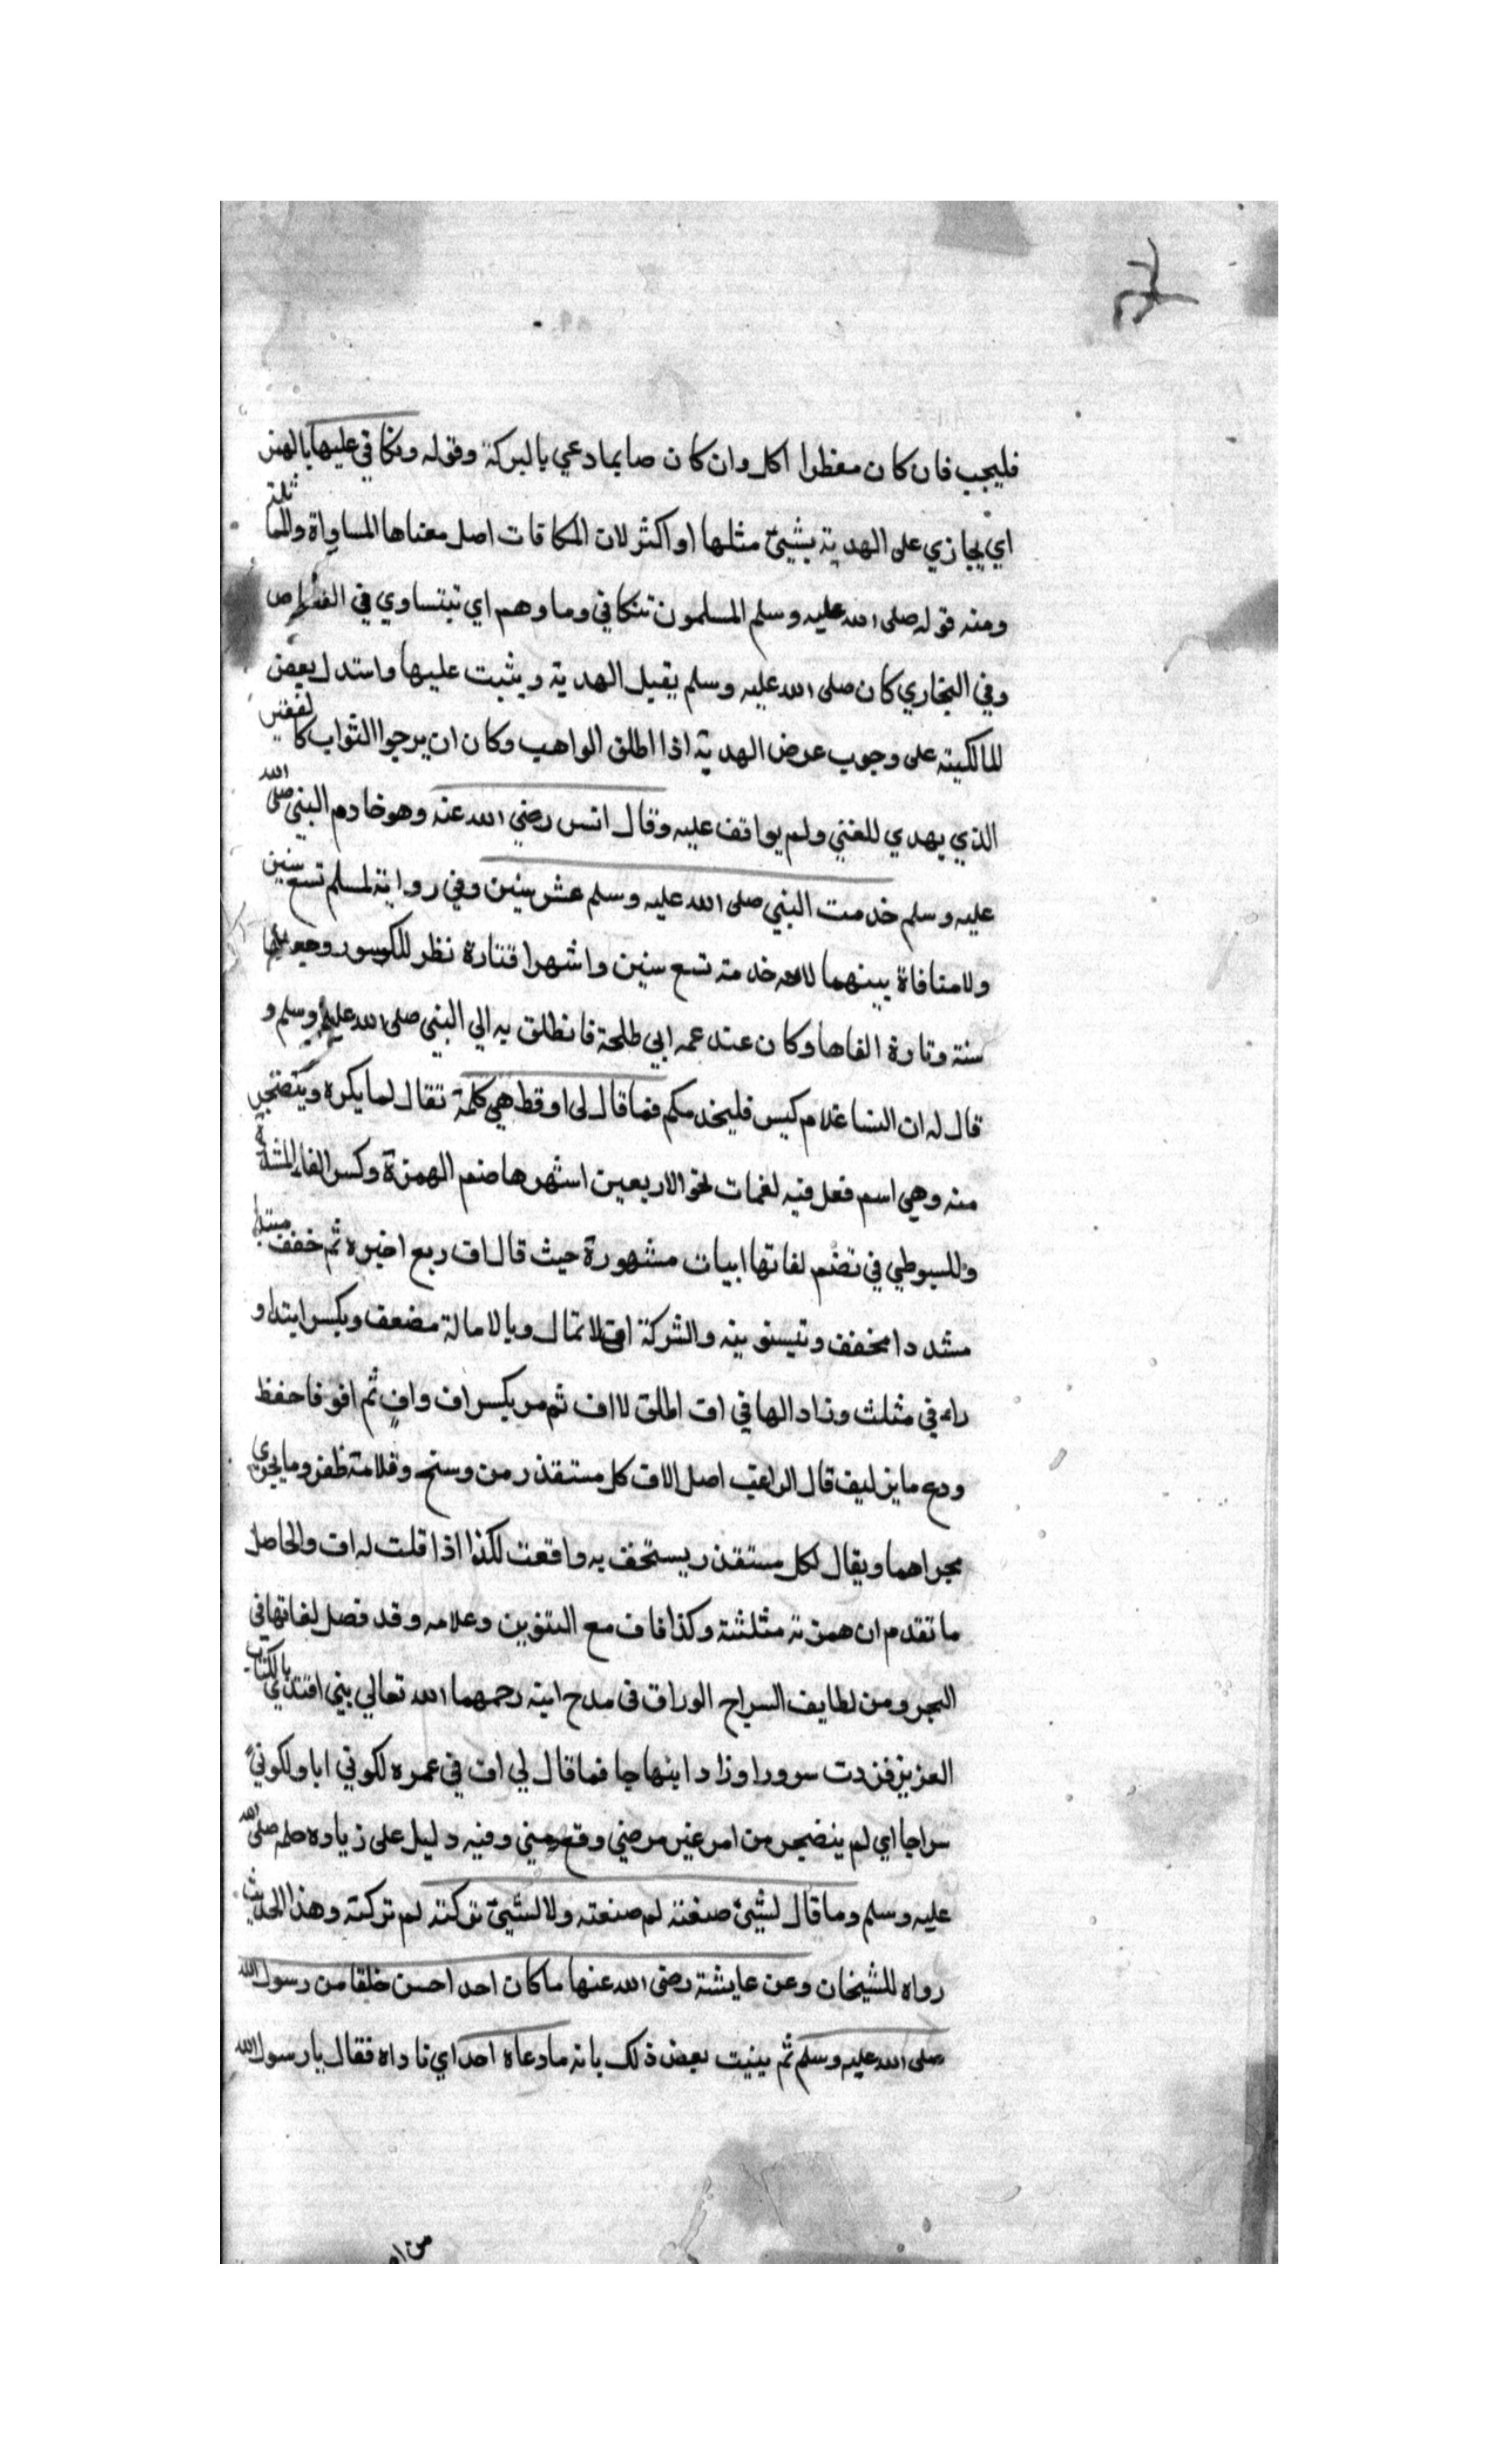 فليجب فان كان مفطرا اكل وان كان صايما دعي بالبركة وقوله وتكافي عليها بالهمز
اي يجازي على الهدية بشيئ مثلها او اكثر لان المكافات اصل معناها المساواة والمماثلة
ومنه قوله صلى الله عليه وسلم المسلمون تتكافي وماوهم اي تبتساوي في القصاص
وفي البخاري كان صلى الله عليه وسلم يقبل الهدية ويثبت عليها واستدل بعض
المالكية على وجوب عرض الهدية اذا اطلق الواهب وكان ان يرجوا الثواب كالفقير
الذي يهدي للغني ولم يوافق عليه وقال انس رضي الله عنه وهو خادم النبي صلى الله
عليه وسلم خدمت النبي صلى الله عليه وسلم عشر سنين وفي رواية لمسلم تسع سنين
ولا منافاة بينهما لانه خدمته تسع سنين واشهرا فتارة نظر للكسور وجعلها
سنة وتارة الغاها وكان عند عمه ابي طلحة فانطلق به الي النبي صلى الله عليه وسلم و
قال له ان انسا غلام كيس فليخدمكم فما قال لى اف قط هي كلمة تقال لما يكره ويتضجر
منه وهي اسم فعل فيه لغات نحو الاربعين اشهرها ضم الهمزة وكسر الفاء المشددة
وللسيوطي في تضم لغاتها ابيات مشهورة حيث قال اف ربع اخيره ثم خفف مبتدا
مشددا مخفف وتيسنوينه والشركة افى لا تمال وبالامالة مضعف وبكسر ابتدا و
راه في مثلث وزاد الها في اف اطلق لا اف ثم مر بكسر اف وافٍ ثم افو فاحفظ
ودع ما يزليف قال الراغب اصل الاف كل مستقذر من وسخ وقلامة ظفر وما يجري
مجراهما ويقال لكل مستقذر يستخف به وافعت لكذا اذا قلت له اف والحاصل
ما تقدم ان همزته مثلثة وكذا فاف مع التنوين وعلامه وقد فصل لغاتها في
البحر ومن لطايف السراح الوراق في مدح ابنه رحمهما الله تعالي بني افتدي بالكتاب
العزيز فزدت سرورا وزاد ابنهاجا فما قال لي اف في عمره لكوني ابا ولكوني
سراجا اي لم ينضجر من امر غير مرضي وقع مني وفيه دليل على زياده حلمه صلى الله
عليه وسلم وما قال لشيئ صنعته لم صنعته ولا لشيئ تركته لم تركته وهذا الحديث
رواه للشيخان وعن عايشة رضى الله عنها ما كان احد احسن خلقا من رسول الله
صلى الله عليه وسلم ثم بينت بعض ذلك بانه ما دعاه احد اي ناداه فقال يا رسول الله